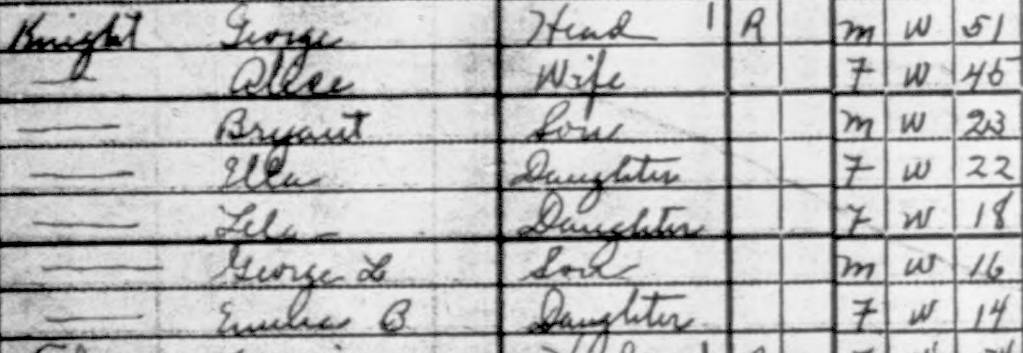 Knight George Head 1 R M W 51
— Alice Wife F W 45
— Bryant Son M W 23
— Ella Daughter F W 22
— Lela Daughter F W 18
— George L Son M W 16
— B Daughter F W 14